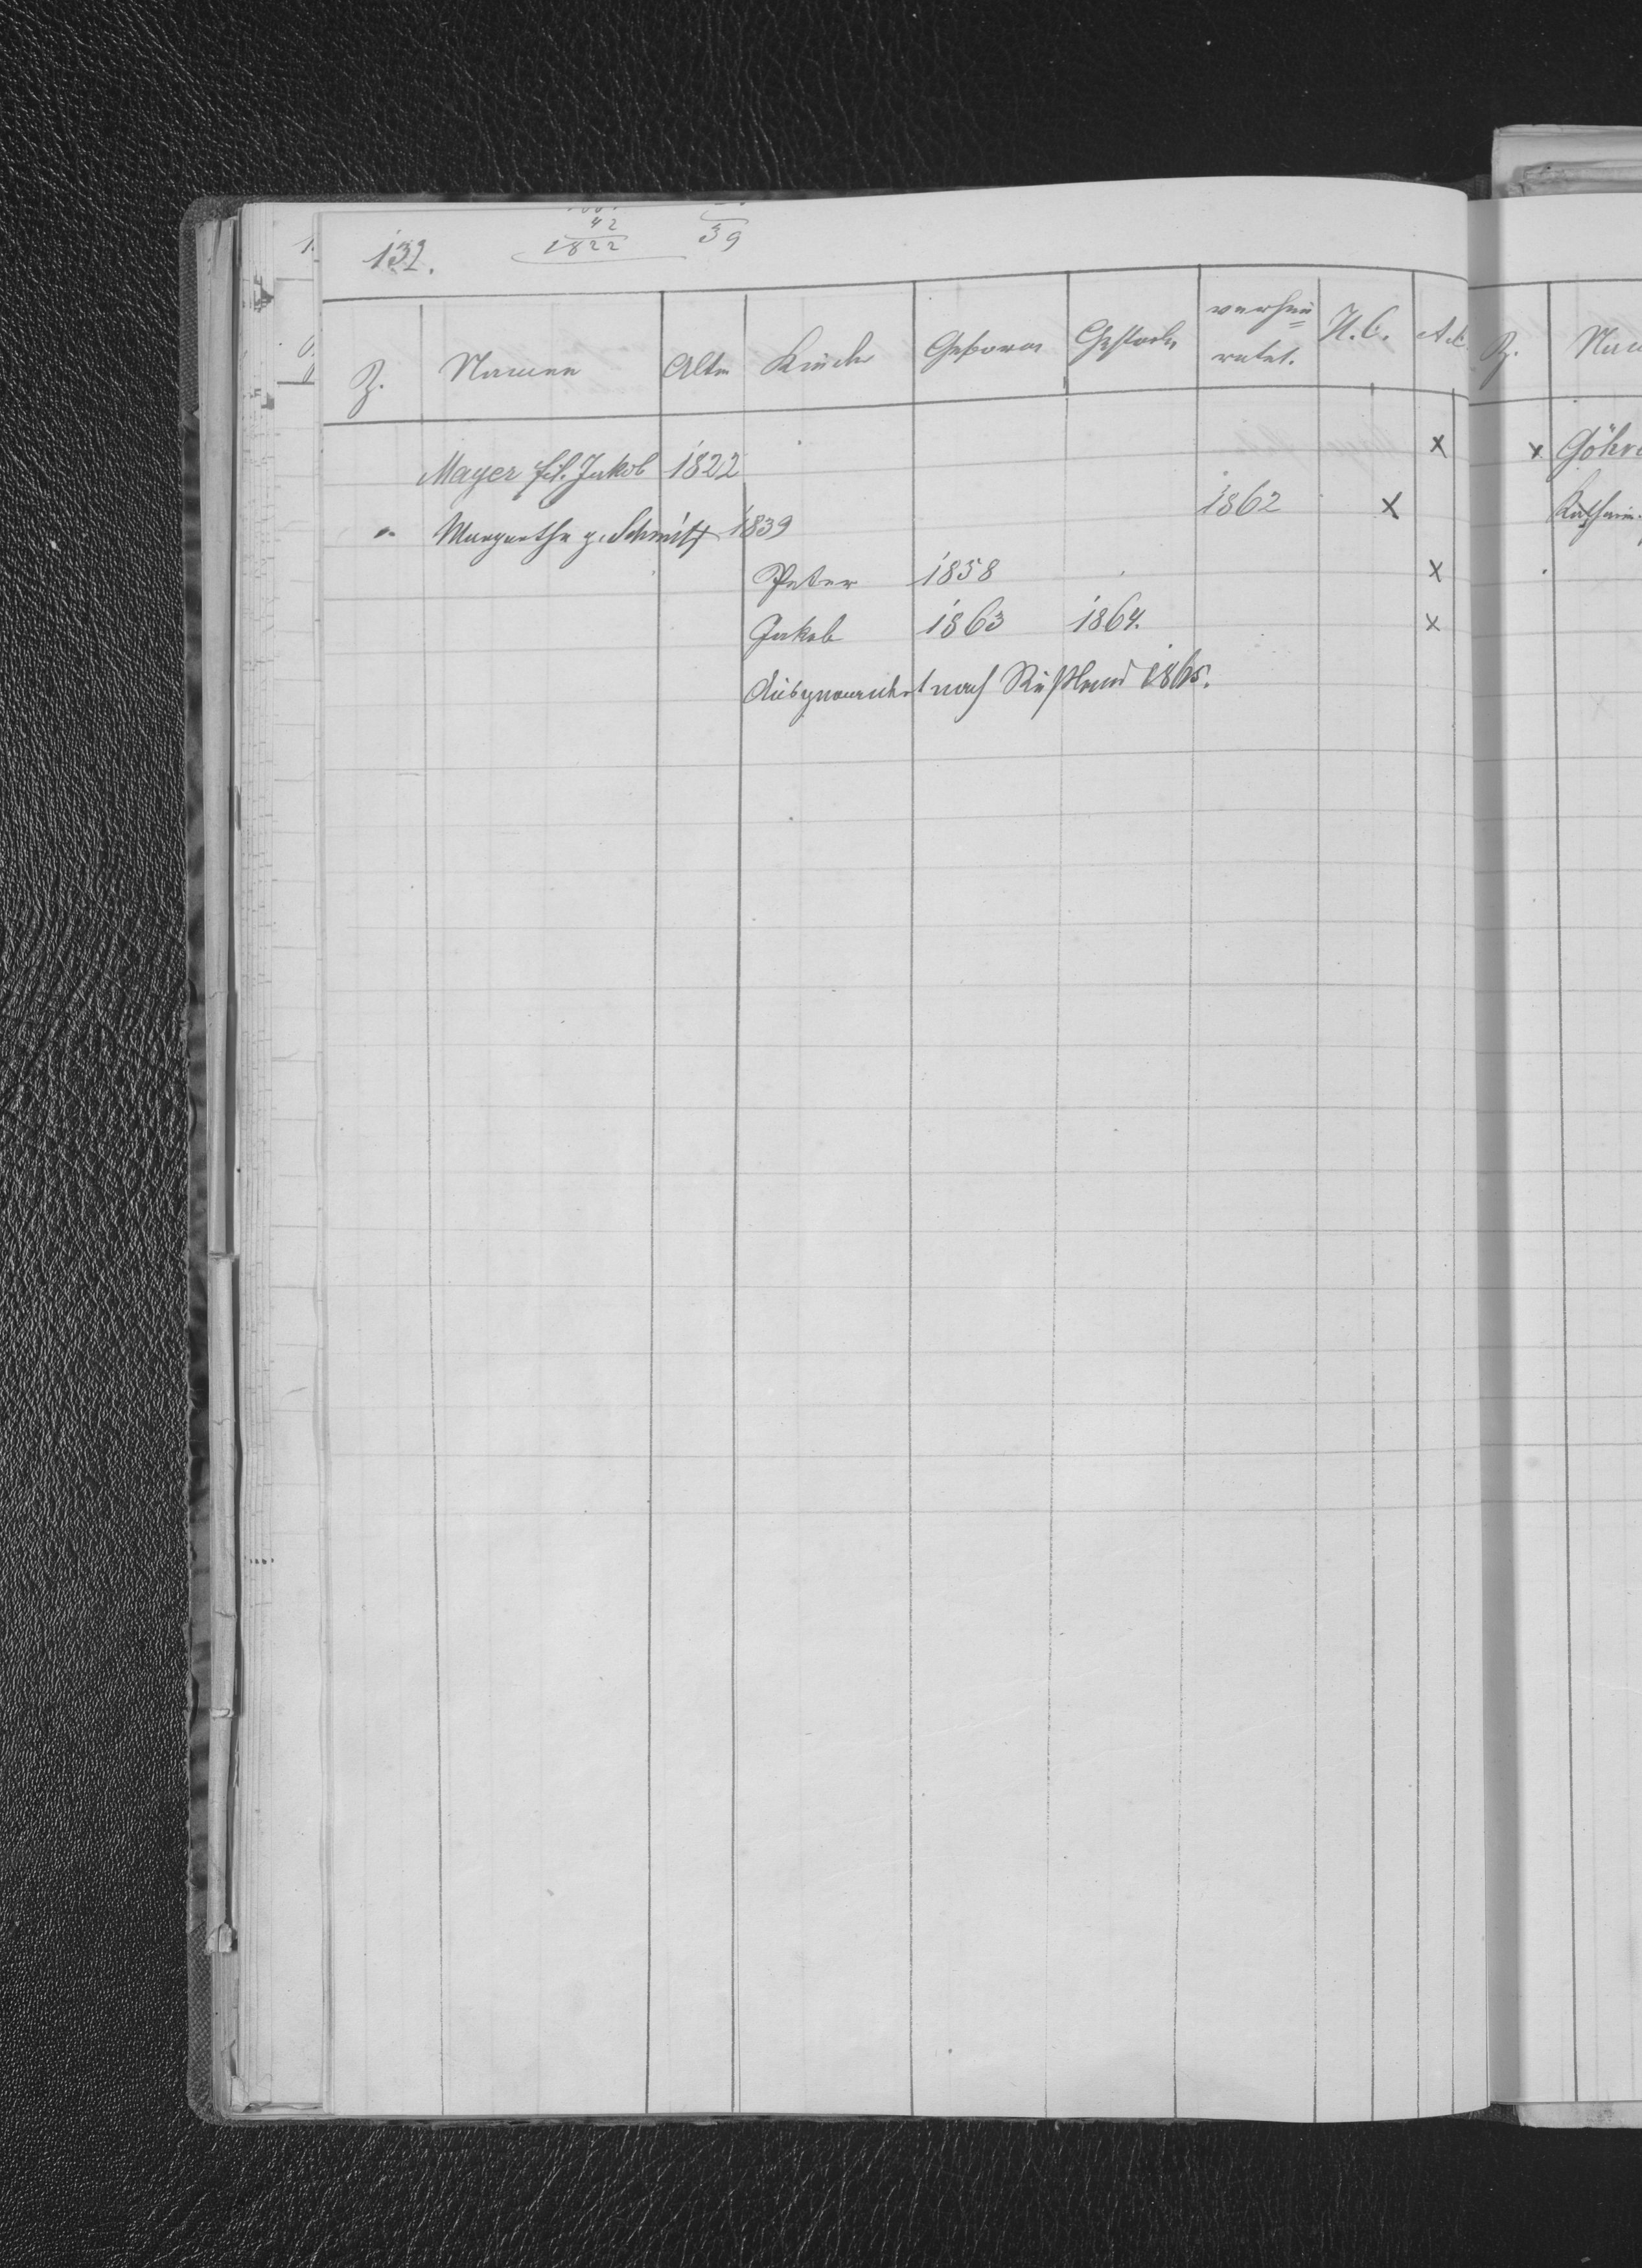 42
1822 39
132.
Z. Namen Alter Kinder Geboren Gestorben verhei=
ratet. H.C. A.C. Z.
Mayer fil. Jakob 1822 x x Göhri
" Margaretha g. Schmitt 1839 1862 x
Peter 1858 x
Jakob 1863 1864. x
Ausgewandert nach Rußland 1865.